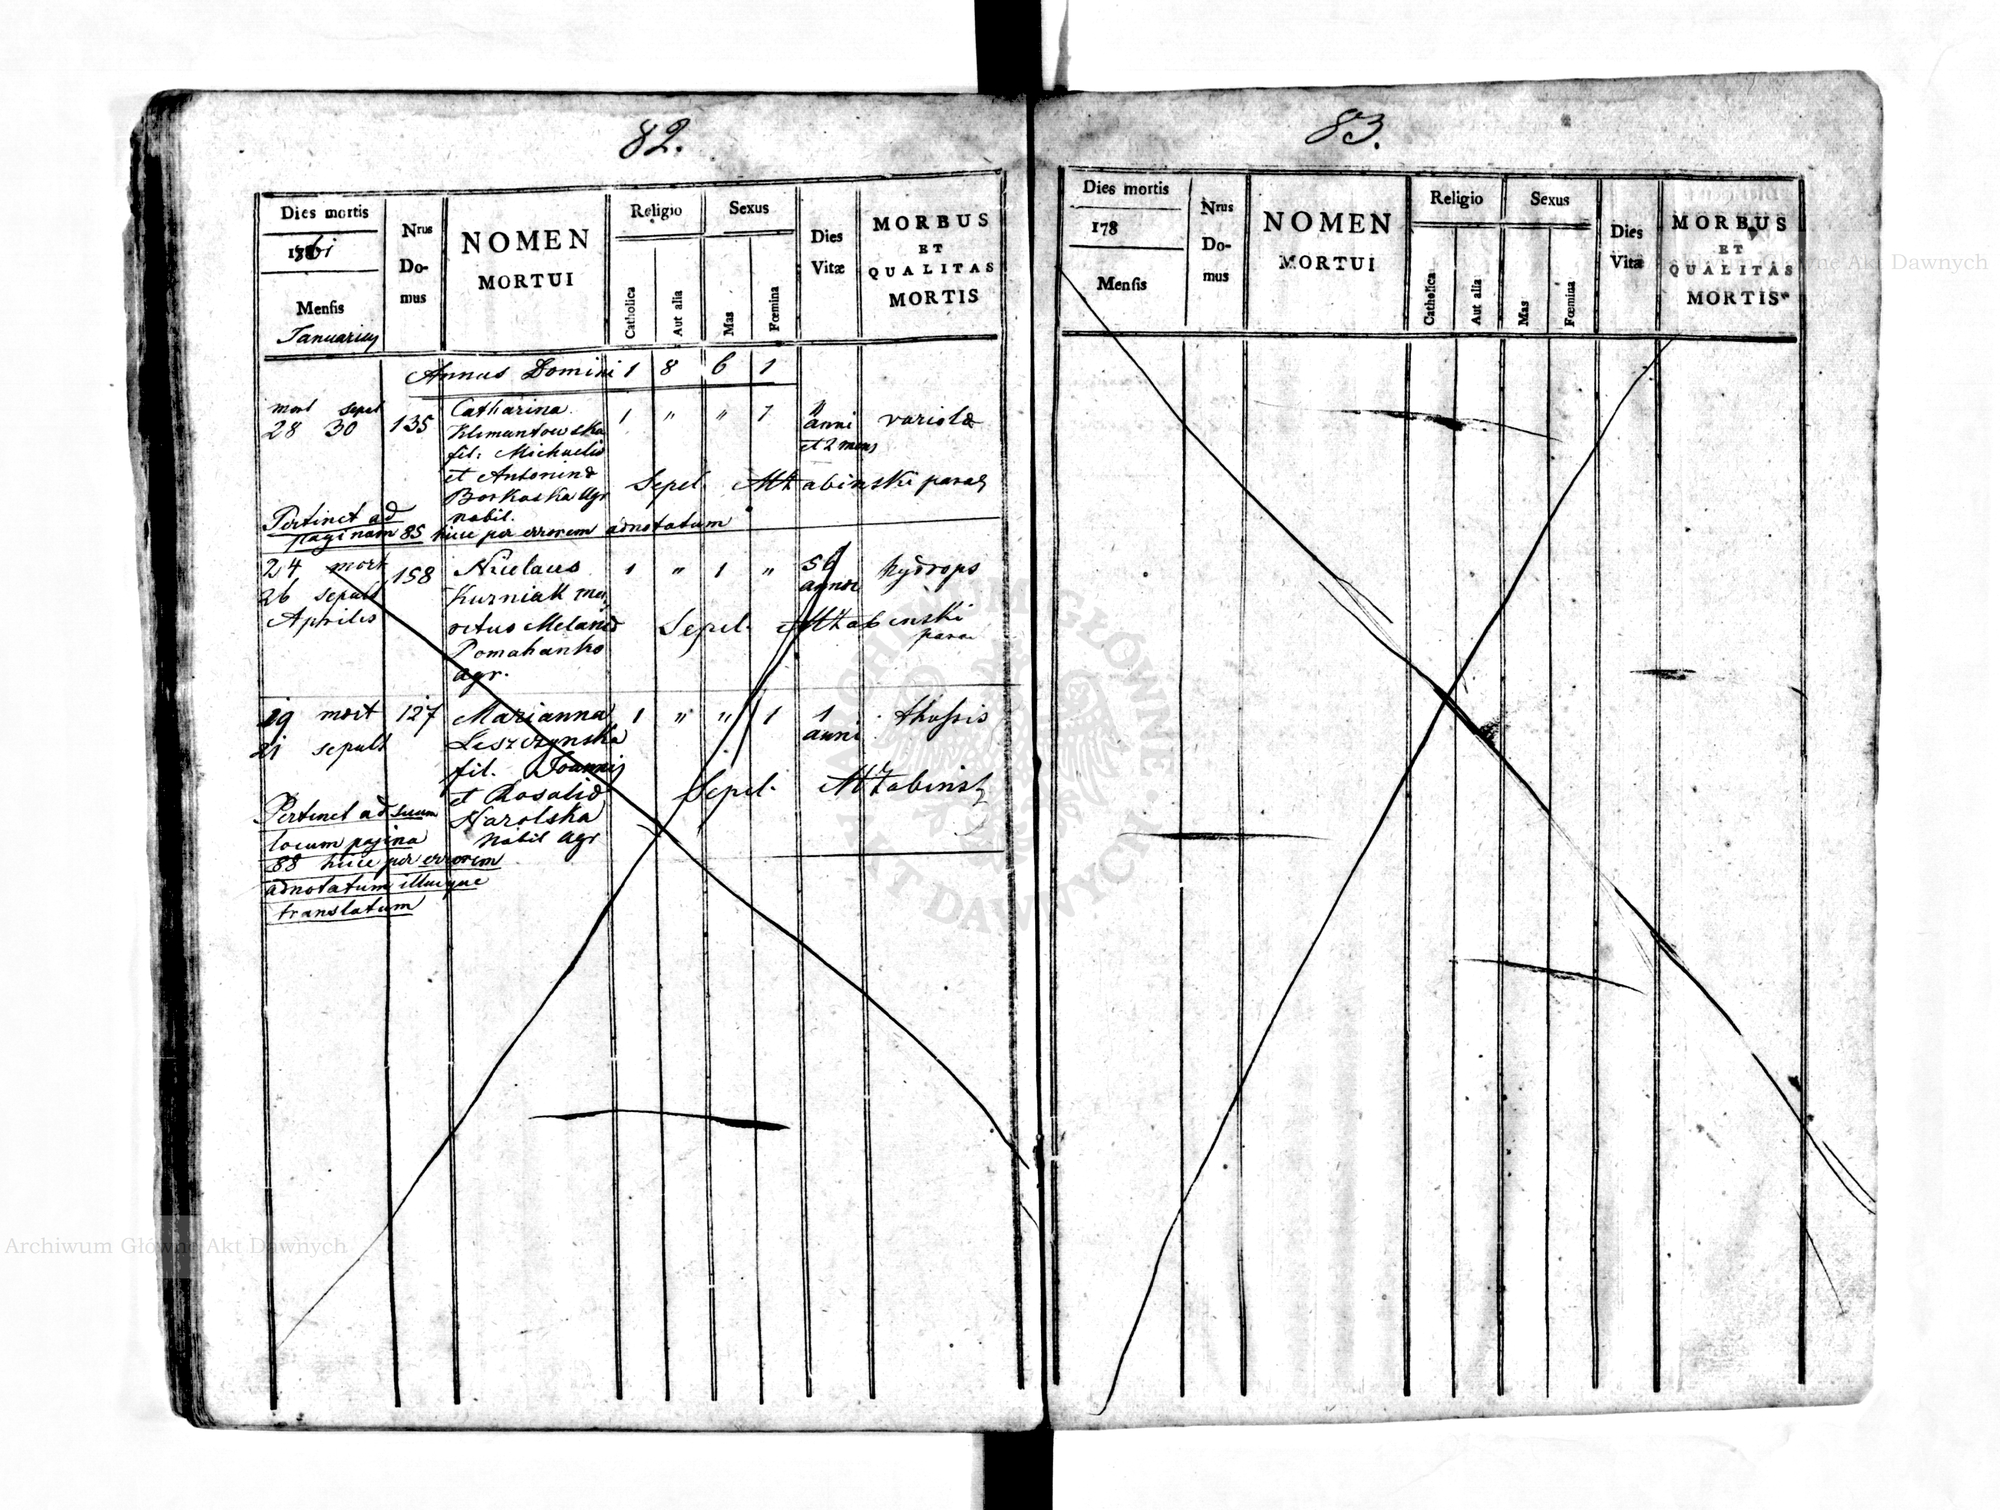 82.
Dies mortis
186i
Mensis
Januarius
Nrus
Do-
mus
NOMEN
MORTUI
Religio
Catholica
Aut alia
Sexus
Mas
Fœmina
Dies
Vitæ
MORBUS
ET
QUALITAS
MORTIS
Annus Domini 1 8 6 1
mort sepul
28 30 135 Catharina 1 " " 1 " variola
Klimuntowska anni
fil: Michaelis et 2 mens
et Antonina
Borkoska agr Sepel.
nobil.
Pertinet ad
paginam 85 huce per errorem adnotatum
24 mort 158 Nicolaus 1 " 1 " 56 hydrops
26 sepult Kurniak annor
Aprilis
ritus Melania Sepel.
Pomahanko
agr.
19 mort 127 Marianna 1 " " 1 1 thussis
21 sepult Leszczynska anni
fil. Joannis
et Rosalia Sepel.
Narolska
nobil agr
Pertinet ad suum
locum pagina
88 huce per errorem
adnotatum illucque
translatum
83.
Dies mortis
178
Mensis
Nrus
Do-
mus
NOMEN
MORTUI
Religio
Catholica
Aut alia
Sexus
Mas
Fœmina
Dies
Vitæ
MORBUS
ET
QUALITAS
MORTIS
ARCHIWUM GŁÓWNE AKT DAWNYCH
Archiwum Główne Akt Dawnych
Archiwum Główne Akt Dawnych